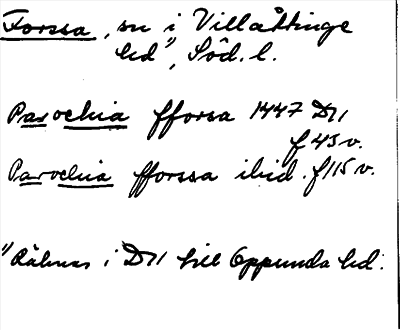 Forssa, sn i Villåttinge
hd", Söd. l.
Parochia fforsa 1447 D11
f 45 v.
Parochia fforssa ibid. f 115 v.
"Räknas i D11 till Oppunda hd.